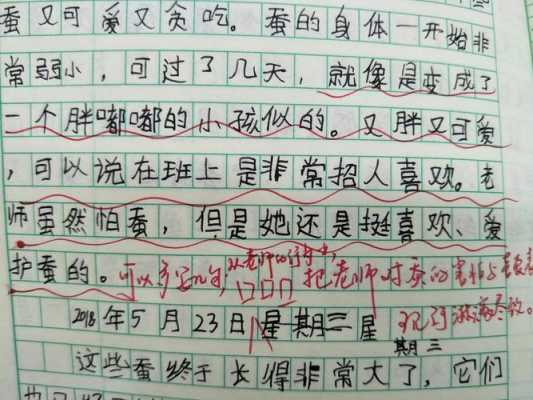 蚕又可爱又贪吃。蚕的身体一开始非
常弱小，可过了几天，就像是变成了
一个胖嘟嘟的小孩似的。又胖又可爱
，可以说在班上是非常招人喜欢。老
师虽然怕蚕，但是她还是挺喜欢、爱
护蚕的。可以多写几句，从老师的
把老师对蚕的害怕与
2018年5月23日星期三 星
期三
这些蚕终于长得非常大了，它们